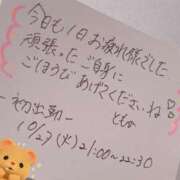 今日も1日お疲れ様でした
頑張ったご自身に
ごほうびあげてくださいね♡
ともか
-初出勤-
10/27(火)21:00~22:30